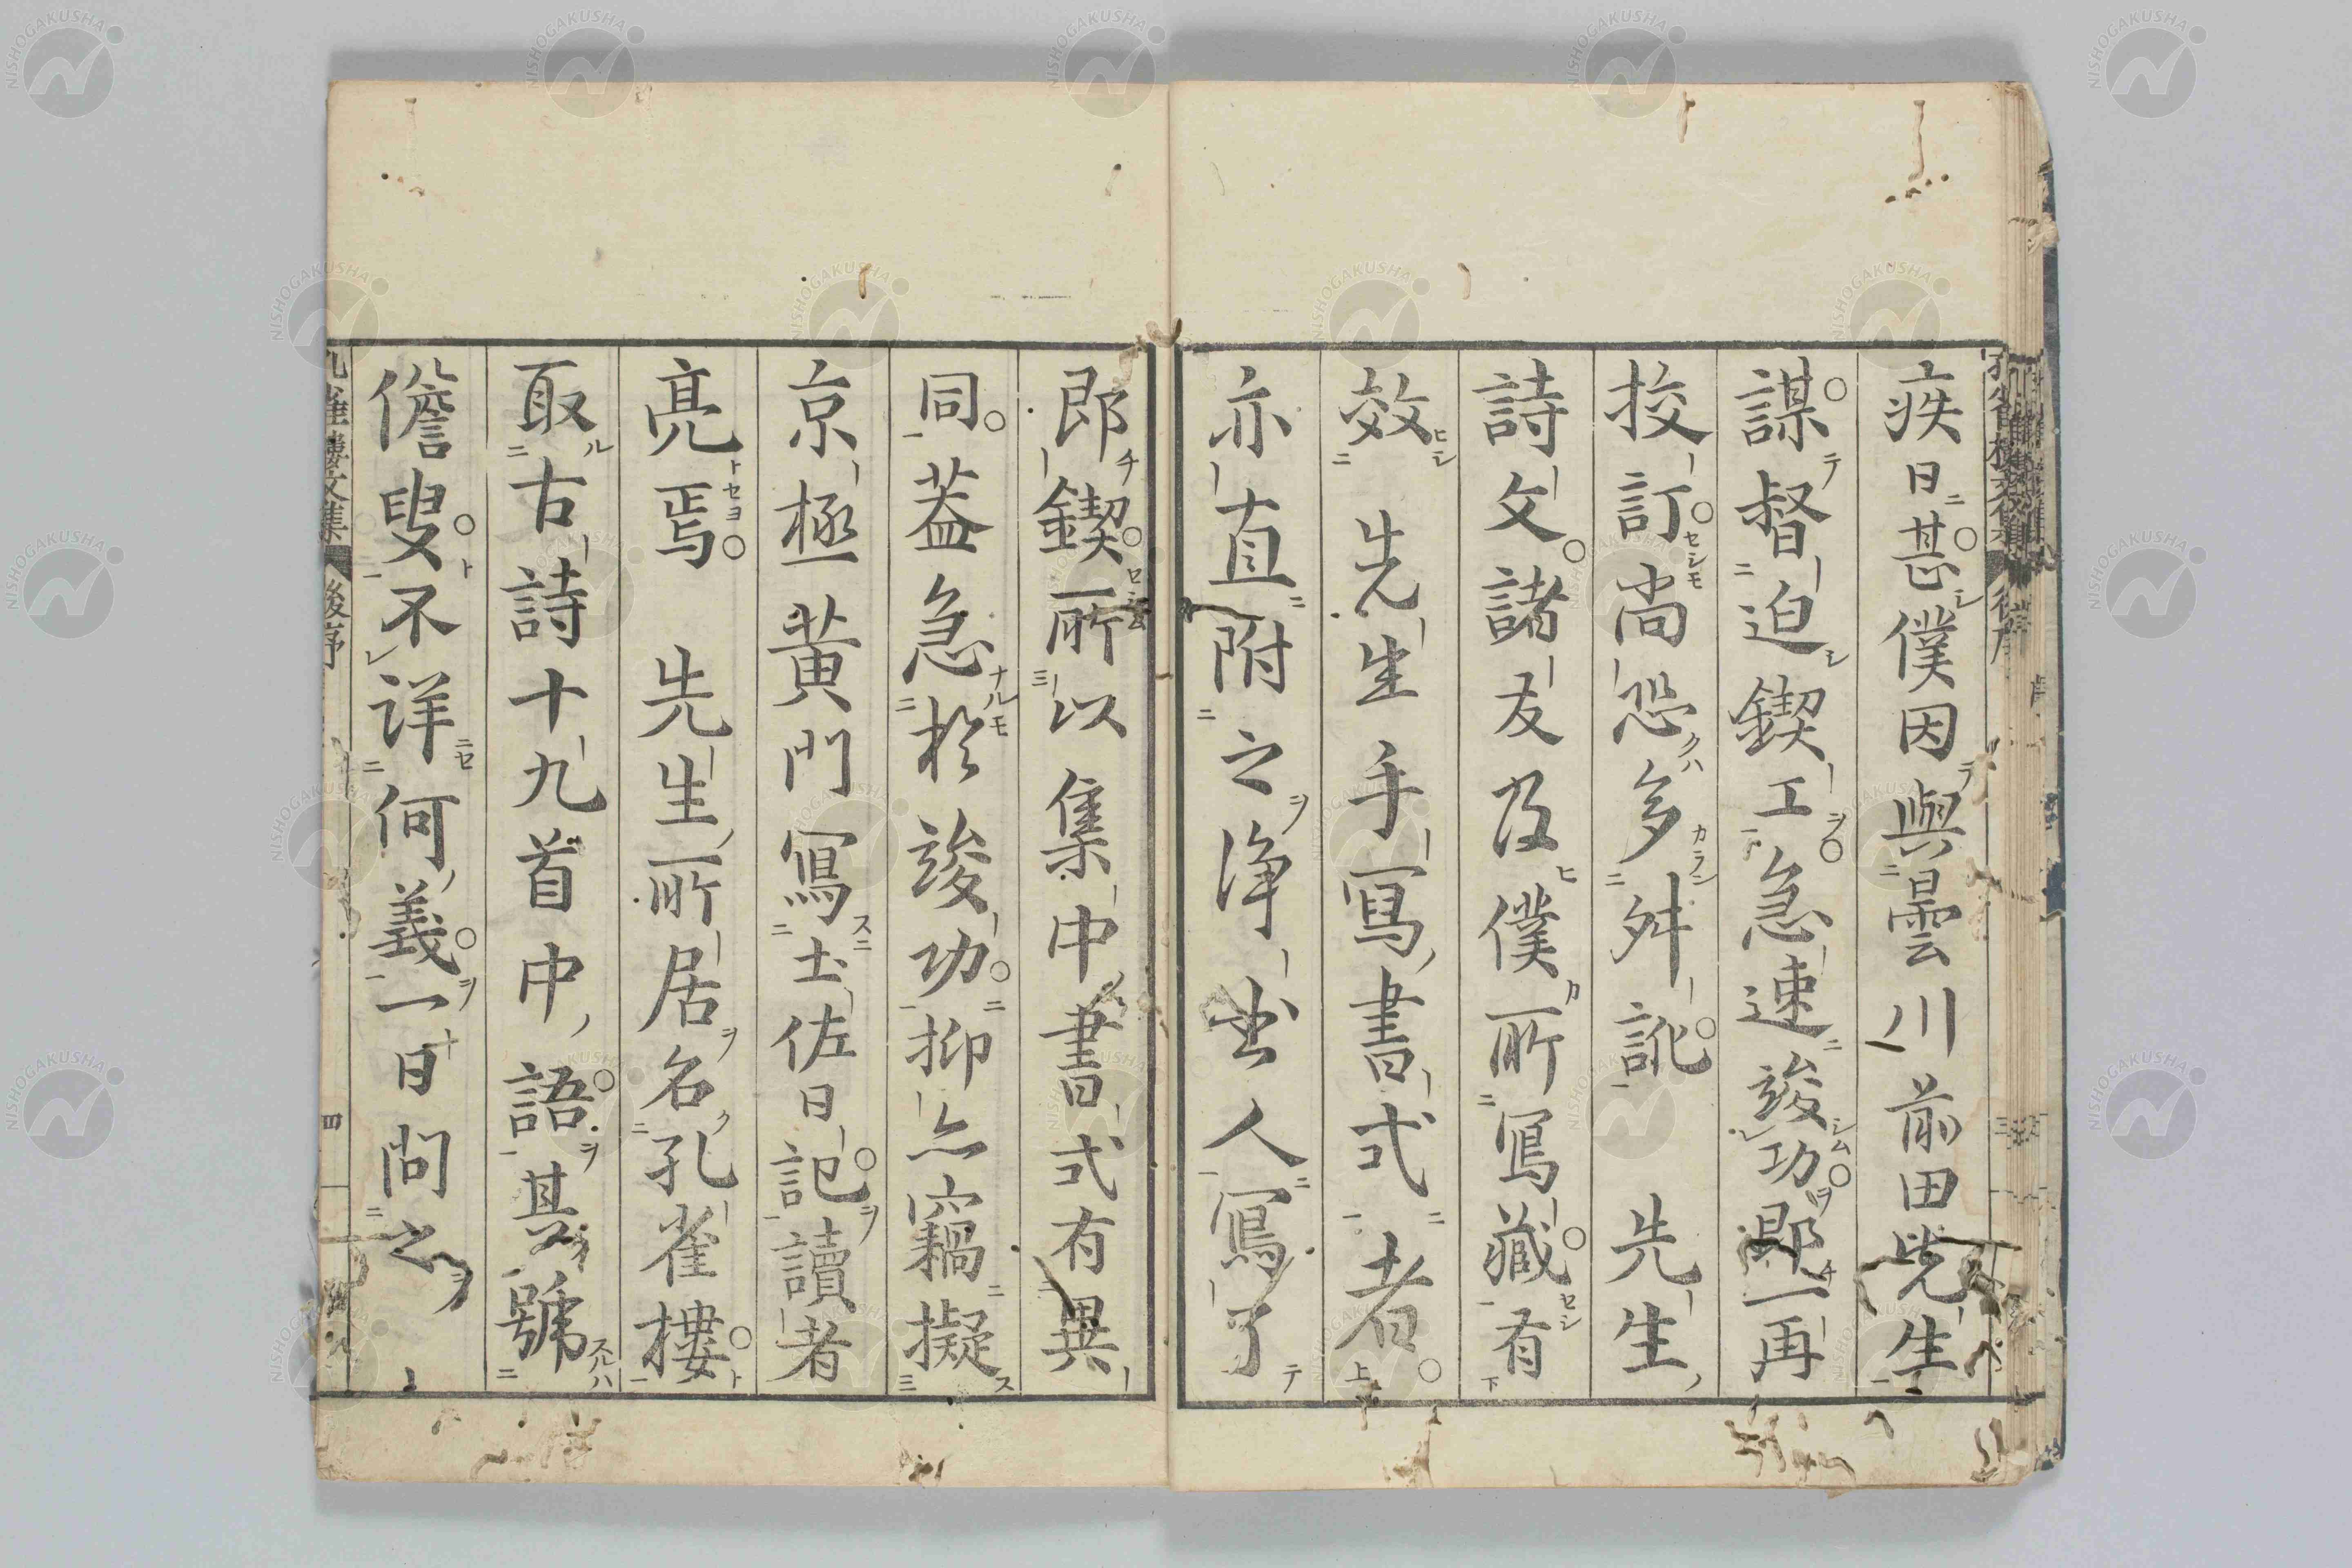 疾日甚僕因與曇川前田先生
謀督迫鍥工急速竣功郎一再
挍訂尚恐多舛訛　先生
詩文諸友及僕所寫藏有
效　先生手寫書式者
亦直附之淨書人寫了
郎鍥所以集中書式有異
同葢急於竣功抑亦竊擬
京極黃門寫土佐日記讀者
亮焉　先生所居名孔雀樓
取古詩十九首中語其號
儋叟不详何義一日問之
孔雀樓文集　後序　四
NISHOGAKUSHA